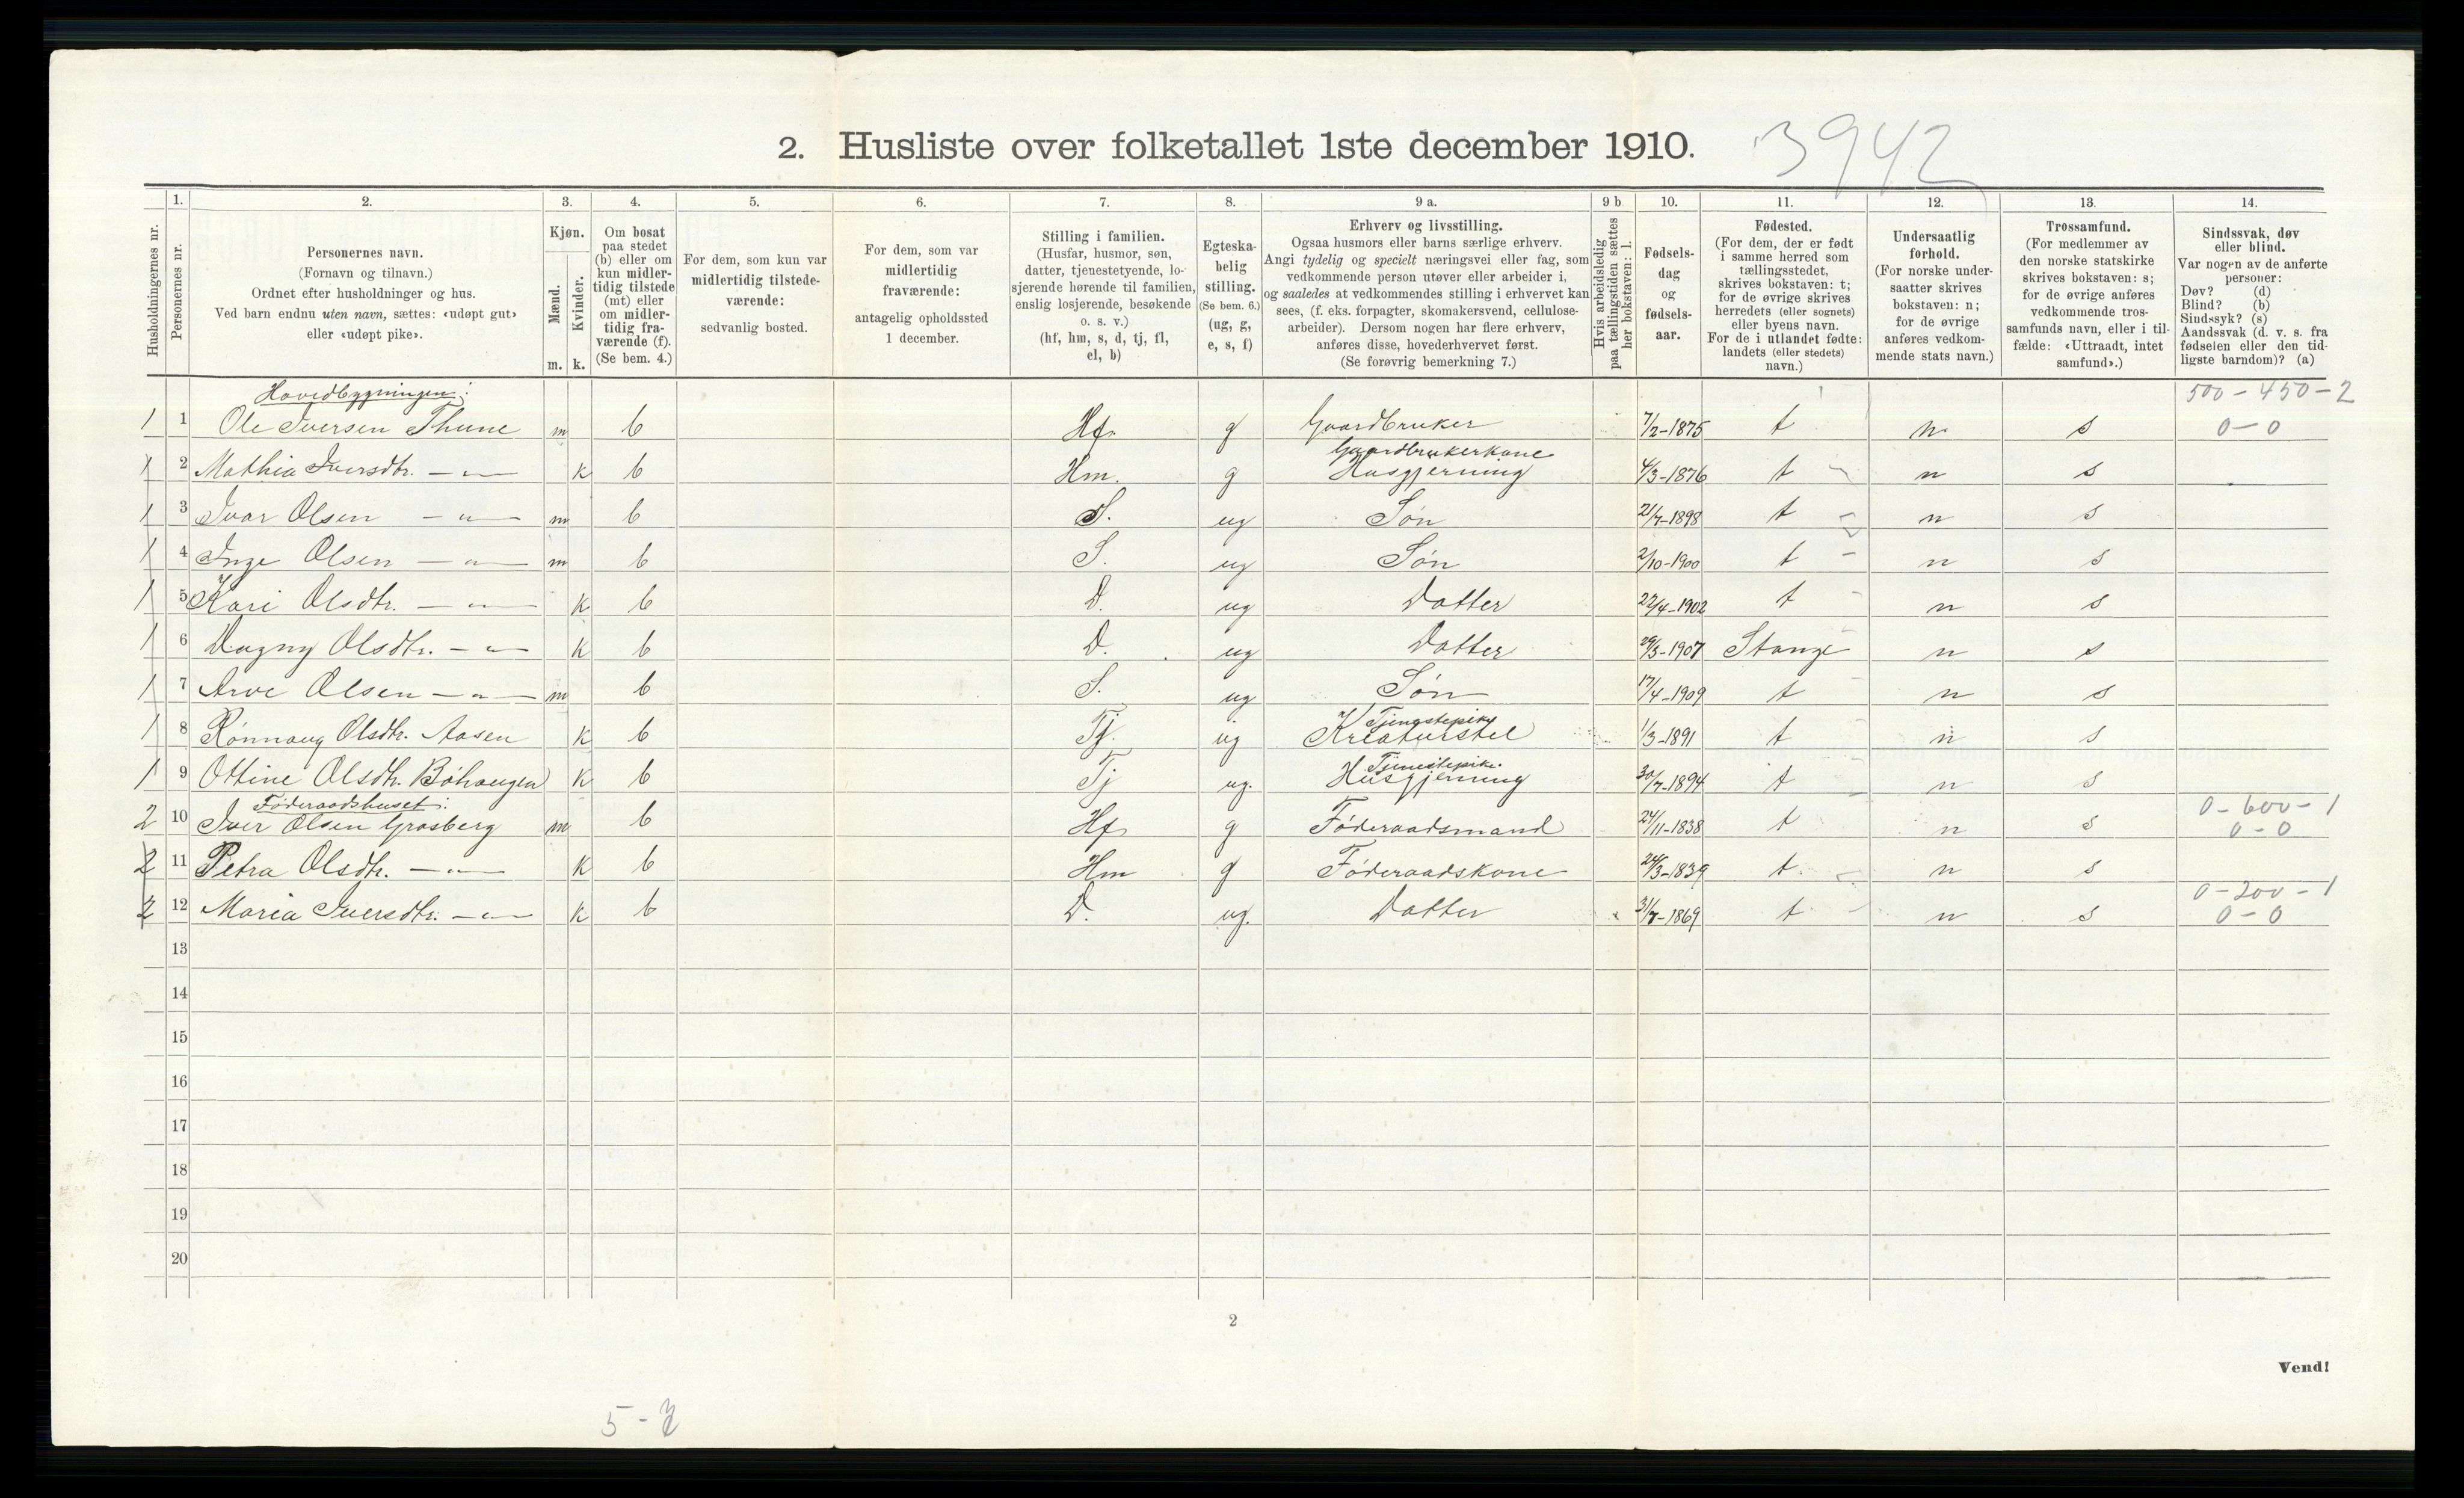 2. Husliste over folketallet 1ste december 1910. 3942
1. 2. 3. 4. 5. 6. 7. 8. 9 a. 9 b 10. 11. 12. 13. 14.
Husholdningernes nr.
Personernes nr.
Personernes navn.
(Fornavn og tilnavn.)
Ordnet efter husholdninger og hus.
Ved barn endnu uten navn, sættes: «udøpt gut»
eller «udøpt pike».
Kjøn.
Mænd.
Kvinder.
m. k.
Om bosat
paa stedet
(b) eller om
kun midler-
tidig tilstede
(mt) eller
om midler-
tidig fra-
værende (f).
(Se bem. 4.)
For dem, som kun var
midlertidig tilstede-
værende:
sedvanlig bosted.
For dem, som var
midlertidig
fraværende:
antagelig opholdssted
1 december.
Stilling i familien.
(Husfar, husmor, søn,
datter, tjenestetyende, lo-
sjerende hørende til familien,
enslig losjerende, besøkende
o. s. v.)
(hf, hm, s, d, tj, fl,
el, b)
Egteska-
belig
stilling.
(Se bem. 6.)
(ug, g,
e, s, f)
Erhverv og livsstilling.
Ogsaa husmors eller barns særlige erhverv.
Angi tydelig og specielt næringsvei eller fag, som
vedkommende person utøver eller arbeider i,
og saaledes at vedkommendes stilling i erhvervet kan
sees, (f. eks. forpagter, skomakersvend, cellulose-
arbeider). Dersom nogen har flere erhverv,
anføres disse, hovederhvervet først.
(Se forøvrig bemerkning 7.)
Hvis arbeidsledig
paa tællingstiden sættes
her bokstaven: l.
Fødsels-
dag
og
fødsels-
aar.
Fødested.
(For dem, der er født
i samme herred som
tællingsstedet,
skrives bokstaven: t;
for de øvrige skrives
herredets (eller sognets)
eller byens navn.
For de i utlandet fødte:
landets (eller stedets)
navn.)
Undersaatlig
forhold.
(For norske under-
saatter skrives
bokstaven: n;
for de øvrige
anføres vedkom-
mende stats navn.)
Trossamfund.
(For medlemmer av
den norske statskirke
skrives bokstaven: s;
for de øvrige anføres
vedkommende tros-
samfunds navn, eller i til-
fælde: «Uttraadt, intet
samfund».)
Sindssvak, døv
eller blind.
Var nogen av de anførte
personer:
Døv? (d)
Blind? (b)
Sindssyk? (s)
Aandssvak (d. v. s. fra
fødselen eller den tid-
ligste barndom)? (a)
Hovedbygningen: 500-450-2
1 1 Ole Iversen Thune m b Hf. g Gaardbruker 7/2-1875 t n s 0-0
Gaardbrukerkone
1 2 Mathia Iversdtr. -"- k b Hm. g Husgjerning 4/3-1876 t n s
1 3 Ivar Olsen -"- m b S. ug Søn 21/7-1898 t n s
1 4 Inge Olsen -"- m b S. ug Søn 2/10-1900 t n s
1 5 Kari Olsdtr. -"- k b D. ug Datter 22/4-1902 t n s
1 6 Dagny Olsdtr. -"- k b D. ug Datter 29/3-1907 Stange n s
1 7 Arve Olsen -"- m b S. ug Søn 17/4-1909 t n s
Tjenestepike
1 8 Rønnaug Olsdtr. Aasen k b Tj. ug Kreaturstel 1/3-1891 t n s
Tjenestepike
1 9 Ottine Olsdtr. Bøhaugen k b Tj ug. Husgjerning 30/7-1894 t n s
Føderaadshuset: 0-600-1
2 10 Iver Olsen Grosberg m b Hf. g Føderaadsmand 24/11-1838 t n s 0-0
2 11 Petra Olsdtr. -"- k b Hm g Føderaadskone 24/3-1839 t n s
0-200-1
2 12 Maria Iversdtr. -"- k b D. ug. Datter x 31/7-1869 t n s 0-0
13
14
15
16
17
18
19
20
2
Vend!